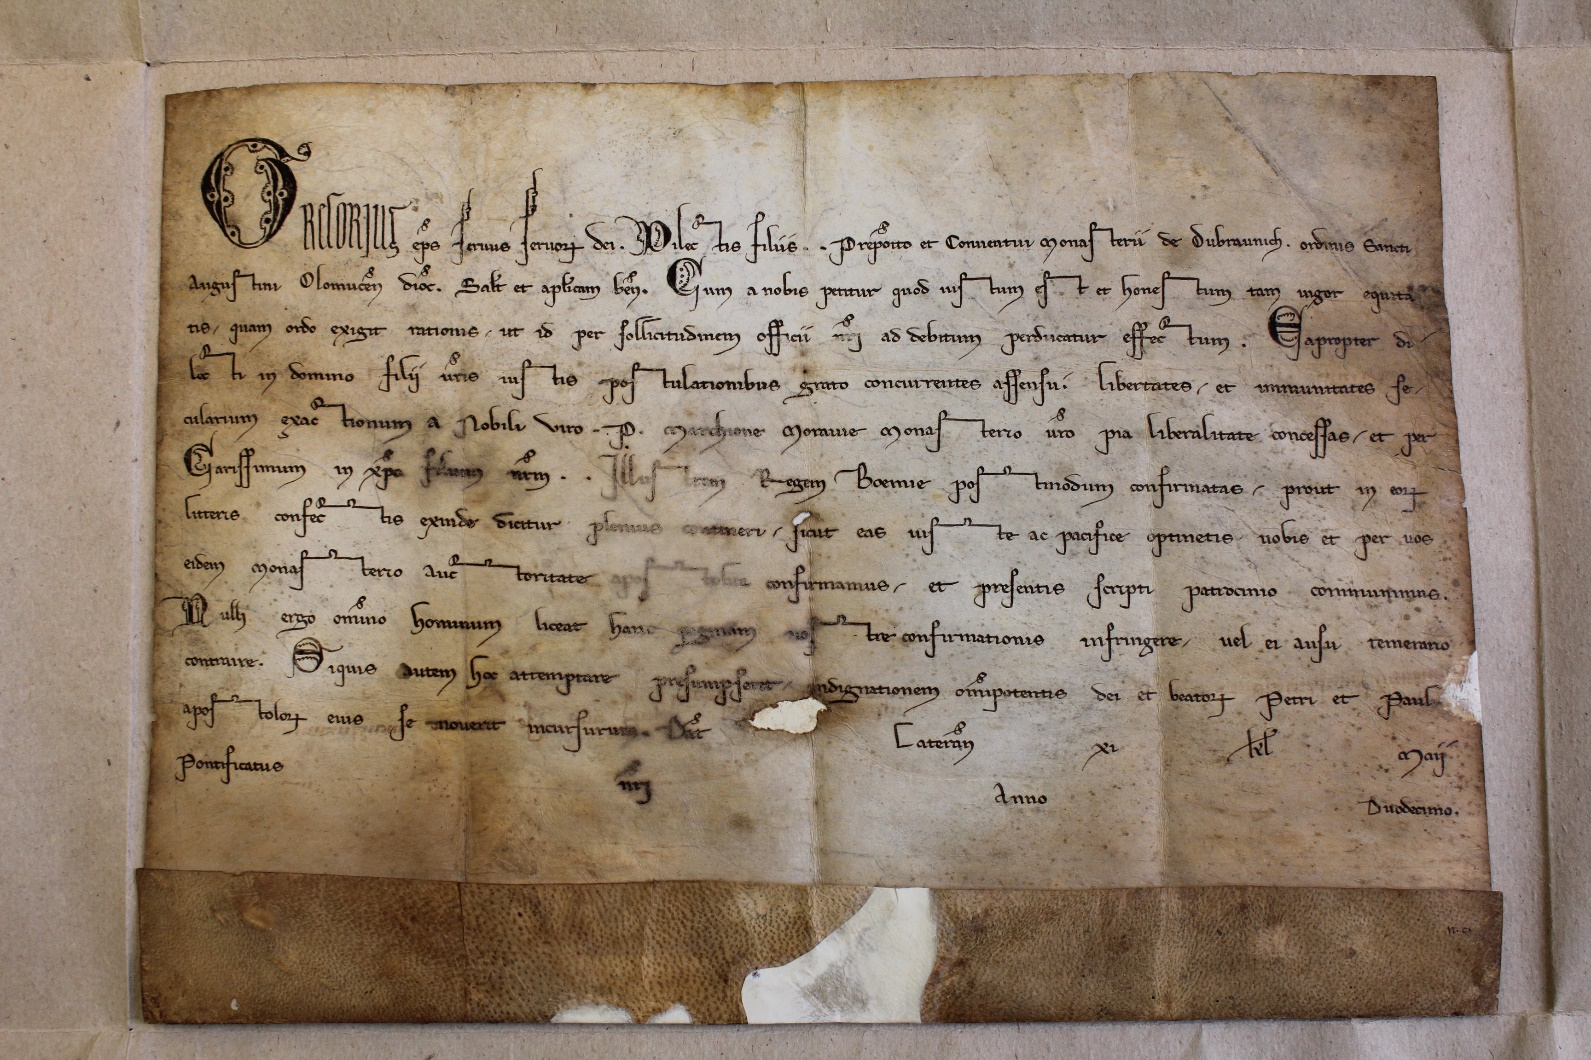 GREGORIUS eps servus servorꝝ dei. Dilectis filiis . . Preposito et Conventui Monasterii de Dubrawnich. ordinis Sancti
Augustini Olomucen dioc. Salt et aplicam ben. Cum a nobis petitur quod iustum est et honestum tam vigor equita
tis, quam ordo exigit rationis, ut id per sollicitudinem officii nri ad debitum perducatur effectum. Eapropter di-
lecti in domino filii vris iustis postulationibus grato concurrentes assensu, libertates, et immunitates se-
cularium exactionum a Nobili viro . P. Marchione Moravie Monasterio vro pia liberalitate concessas, et per
Carissimum in xpo filium nrm . . Illustrem Regem Boemie postmodum confirmatas, prout in eorꝝ
litteris confectis exinde dicitur plenius contineri, sicut eas iuste ac pacifice optinetis vobis et per vos
eidem Monasterio auctoritate apostolica confirmamus, et presentis scripti patrocinio communimus.
Nulli ergo omnino hominum liceat hanc paginam nostre confirmationis infringere, vel ei ausu temerario
contraire. Siquis autem hoc attemptare presumpserit, indignationem omipotentis dei et beatorꝝ Petri et Pauli
apostolorꝝ eius se noverit incursurum. Dat Lateran xi kl Maii
Pontificatus nri Anno Duodecimo.